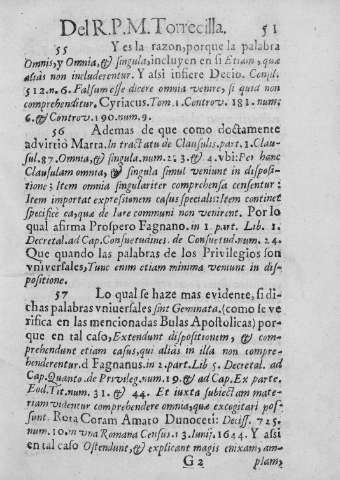 Del R. P. M. Torrecilla. 51
55 Y es la razon, porque la palabra
Omnis, y Omnia, & singula, incluyen en sì Etiam, quæ
aliàs non includerentur. Y assi infiere Decio. Consil.
512. n. 6. Falsum esse dicere omnia venire, si quid non
comprehenditur. Cyriacus. Tom. 1. Controv. 181. num.
6. & Controv. 190. num. 9.
56 Ademas de que como doctamente
advirtiò Marta. In tractatu de Clausulis. part. 1. Clau-
sul. 87. Omnia, & singula. num. 2. 3. & 4. vbi: Per hanc
Clausulam omnia, & singula simul veniunt in disposi-
tione; Item omnia singulariter comprehensa censentur:
Item importat expressionem casus specialis: Item continet
specificè ea, quæ de Iure communi non venirent. Por lo
qual afirma Prospero Fagnano. in 1. part. Lib. 1.
Decretal. ad Cap. Consuetudines. de Consuetud. num. 24.
Que quando las palabras de los Privilegios son
vniversales, Tunc enim etiam minima veniunt in dis-
positione.
57 Lo qual se haze mas evidente, si di-
chas palabras vniuersales sint Geminata. (como se ve
rifica en las mencionadas Bulas Apostolicas) por-
que en tal caso, Extendunt dispositionem, & com-
prehendunt etiam casus, qui aliàs in illa non compre-
henderentur. d Fagnanus. in 2. part. Lib 5. Decretal. ad
Cap. Quanto. de Privileg. num. 19. & ad Cap. Ex parte.
Eod. Tit. num. 31. & 44. Et iuxta subiectam mate-
riam videntur comprehendere omnia, quæ excogitari pos-
sunt. Rota Coram Amato Dunoceti: Deciss. 725.
num. 10. in vna Romana Census. 13. Iunij. 1644. Y assi
en tal caso Ostendunt, & explicant magis enixam, am-
G 2 plam,